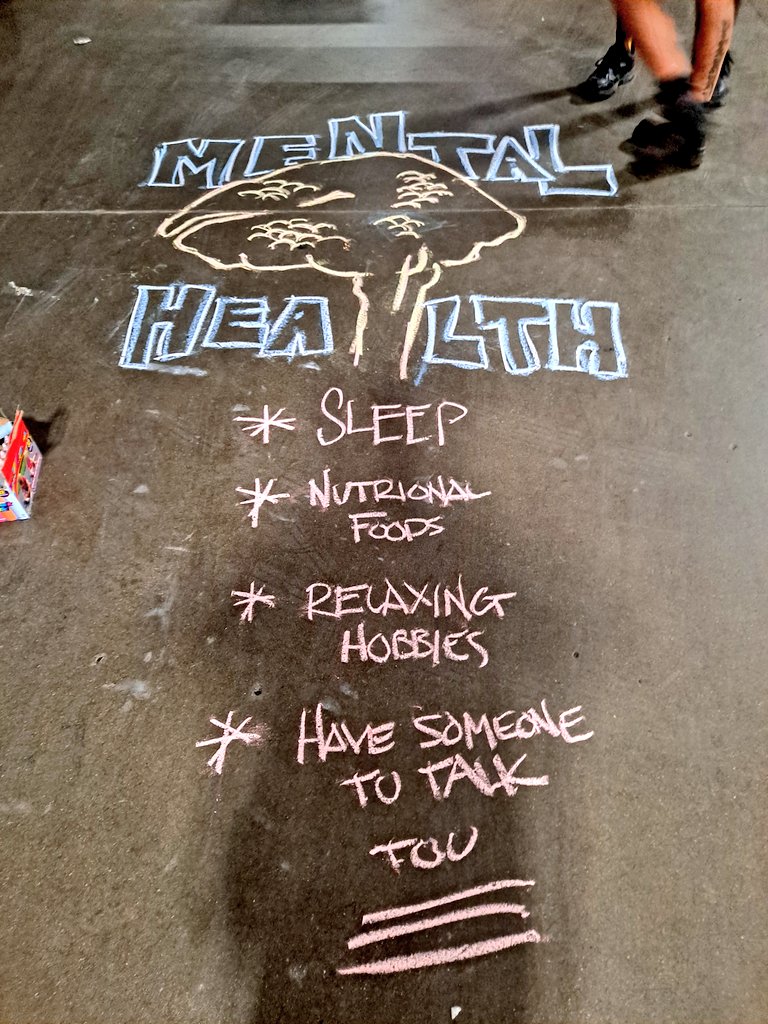 MENTAL
HEALTH
* SLEEP
* NUTRIONAL
FOODS
* RELAXING
HOBBIES
* HAVE SOMEONE
TO TALK
TOU